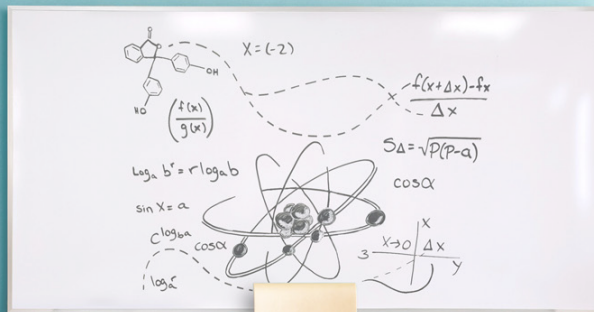 O
O
OH
HO
X = (-2)
(f(x)/g(x))
f(x+Δx)-fx
Δx
SΔ = √P(P-a)
Logₐ bʳ = rlogₐb
cosα
sin X = a
C^logba
cosα
logₐʳ
X
X→0 Δx
3
y